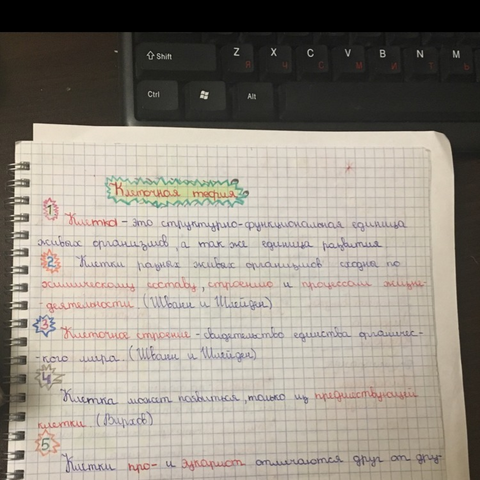 Shift Z X C V B N M
Я Ч С М И Т Ь
Ctrl Alt
Клеточная теория
1
Клетка - это структурно-функциональная единица
живых организмов, а так же единица развития
2 Клетки разных живых организмов сходны по
химическому составу, строению и процессам жизне-
-деятельности (Шванн и Шлейден)
3 Клеточное строение - свидетельство единства органичес-
-кого мира (Шванн и Шлейден)
4
Клетка может появиться, только из предшествующей
клетки (Вирхов)
5
Клетки про- и эукариот отличаются друг от дру-